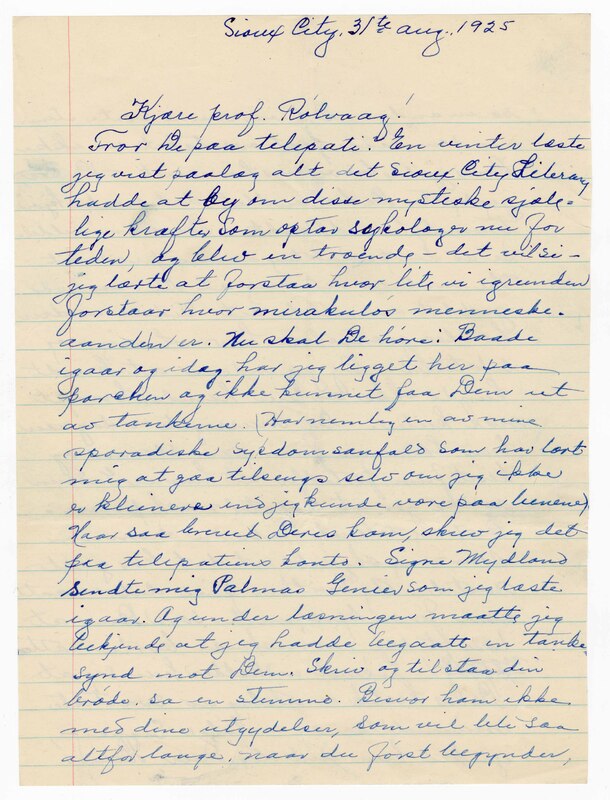 Sioux City, 31te aug., 1925
Kjære prof. Rölvaag!
Tror De paa telepati? En vinter læste
jeg vist paalag alt det Sioux City Literary
hadde at by om disse mystiske sjæle-
lige kræfter som optar sykologer nu for
tiden, og blev en troende - det vil si -
jeg lærte at forstaa hvor lite vi igrunden
forstaar hvor mirakuløs menneske-
aanden er. Nu skal De höre: Baade
igaar og idag har jeg ligget her paa
porchen og ikke kunnet faa Dem ut
av tankerne. (Har nemlig en av mine
sporadiske sygdomsanfald som har lært
mig at gaa tilsengs selv om jeg ikke
er kleinere end jeg kunde være paa benene)
Naar saa brevet Deres kom, skrev jeg det
paa telepatiens konto. Signe Mydland
sendte mig Palmas Genier som jeg læste
igaar. Og under læsningen maatte jeg
bekjende at jeg hadde begaatt en tanke-
synd mot Dem. Skriv og tilstaa din
bröde, sa en stemme. Besvær ham ikke
med dine utgydelser, som vil bli saa
altfor lange, naar du först begynder,